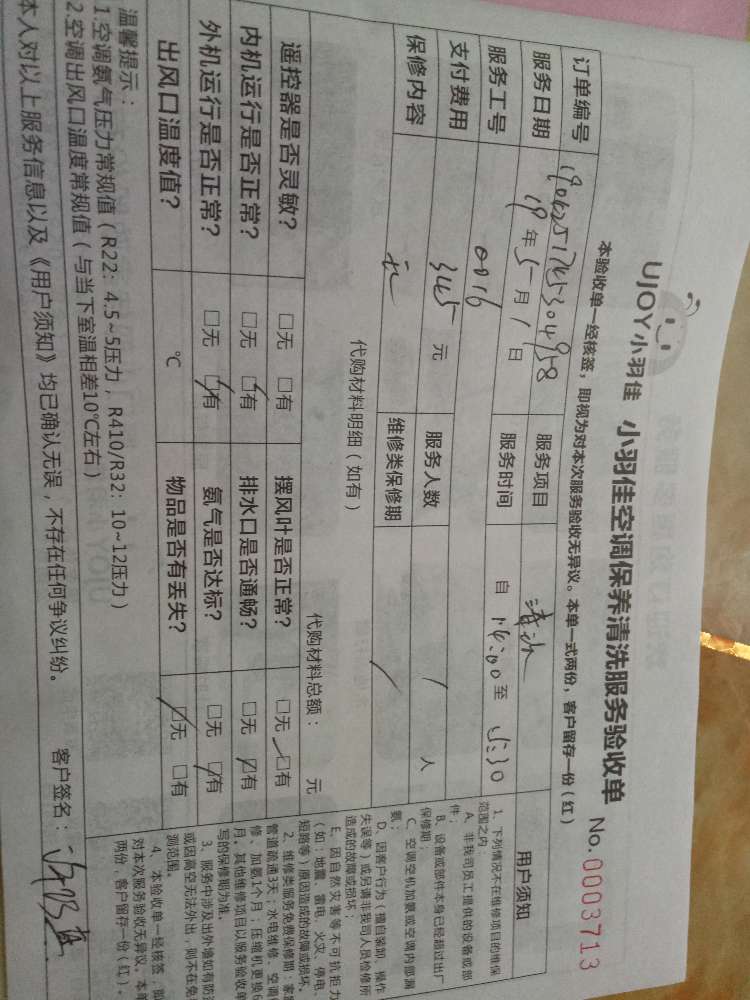 UJOY小羽佳 小羽佳空调保养清洗服务验收单 No.0003713
本验收单一经核签，即视为对本次服务验收无异议。本单一式两份，客户留存一份（红）
订单编号
服务日期 19年5月1日 服务项目 清洗
服务工号 0016 服务时间 自14:00至15:30
支付费用 345元 服务人数 1人
保修内容 无 维修类保修期 /
代购材料明细（如有） 代购材料总额： 元
遥控器是否灵敏? □无 □有 摆风叶是否正常? □无 □有
内机运行是否正常? □无 □有 排水口是否通畅? □无 □有
外机运行是否正常? □无 □有 氨气是否达标? □无 □有
出风口温度值? ℃ 物品是否有丢失? □无 □有
温馨提示：
1.空调氨气压力常规值（R22: 4.5~5压力，R410/R32: 10~12压力）
2.空调出风口温度常规值（与当下室温相差10℃左右）
本人对以上服务信息以及《用户须知》均已确认无误，不存在任何争议纠纷。 客户签名：
用户须知
1、下列情况不在维修项目的维保
范围之内：
A、非我司员工提供的设备或部
件；
B、设备或部件本身已经超过出厂
保修期；
C、空调空机加氨或空调内部漏
氨；
D、因客户行为（擅自装卸、操作
失误等）或另请非我司人员检修所
造成的故障或损坏；
E、因自然灾害等不可抗拒力
（如：地震、雷电、火灾、停电、
短路等）原因造成的故障或损坏。
2、维修类服务免费保修期：家庭
管道疏通3天；水电维修、空调维
修、加氨1个月；压缩机更换6
月。其他维修项目以服务验收单
写的保修期为准。
3、服务中涉及出外墙如有防
或因高空无法外出，则不在免
测范围。
4、本验收单一经核签，即
对本次服务验收无异议。本单
两份，客户留存一份（红）。